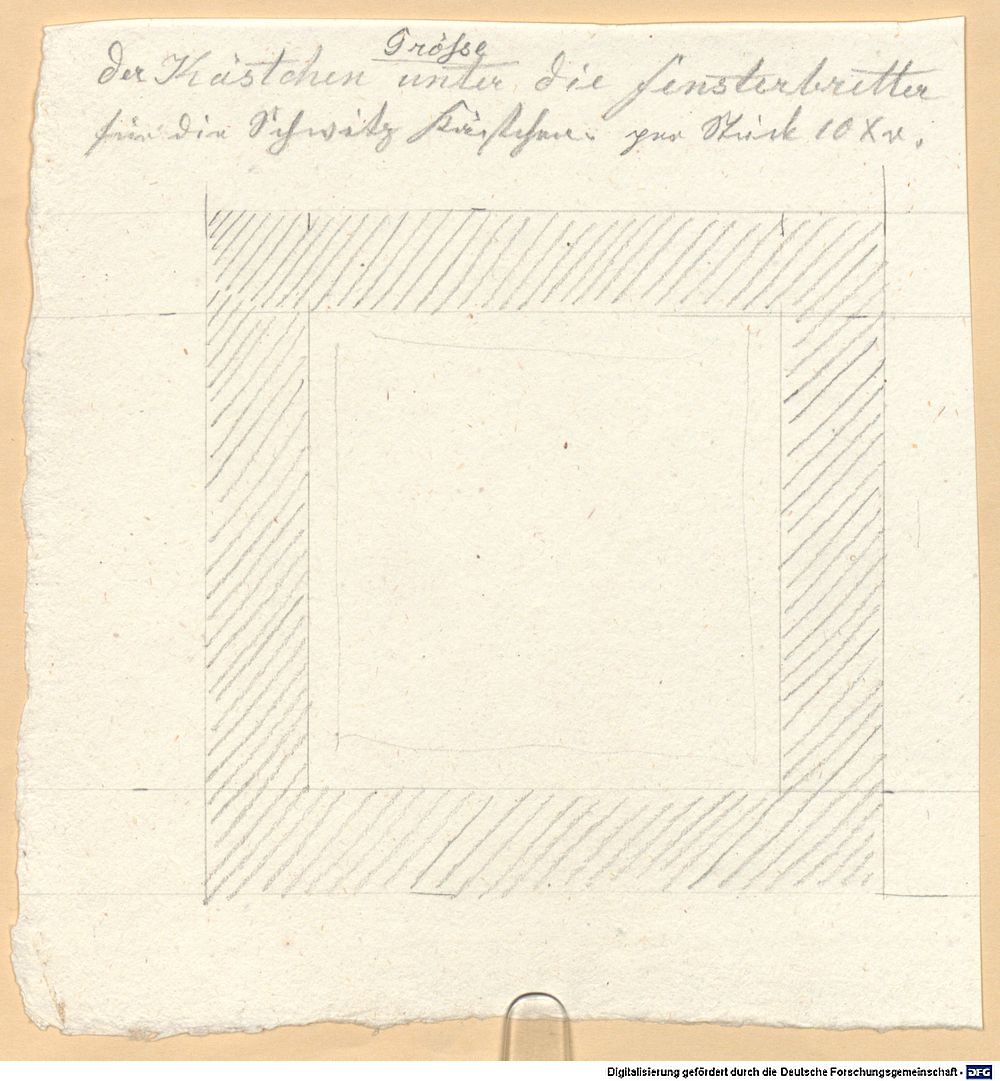 Grösse
der Kästchen unter die Fensterbretter
für die Schwitz Kästchen. per Stück 10 Xr.
Digitalisierung gefördert durch die Deutsche Forschungsgemeinschaft - DFG